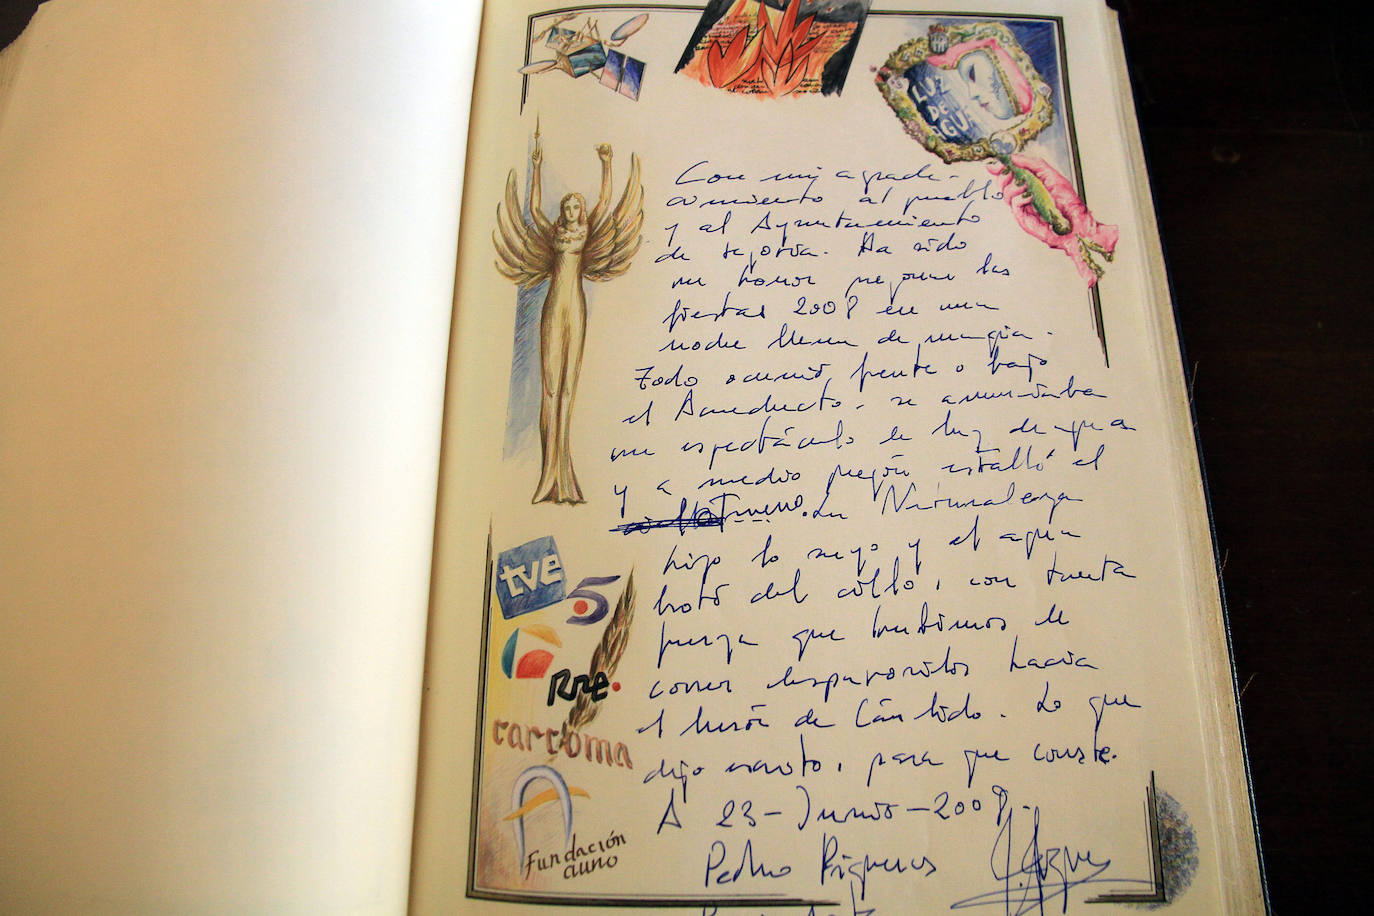 LUZ
DE
AGUA
Con mi agrade-
cimiento al pueblo
y al Ayuntamiento
de Segovia. Ha sido
un honor pregonar las
fiestas 2008 en una
noche llena de magia.
Todo ocurrió frente o bajo
el Acueducto. se anunciaba
un espectáculo de luz de agua
y a medio pregón estalló el
Trueno. La Naturaleza
hizo lo suyo y el agua
brotó del cielo, con tanta
fuerza que tuvimos de
correr despavoridos hacia
el Mesón de Cándido. Lo que
digo escrito, para que conste.
A 23-Junio-2008.
Pedro Piqueras
tve
5
Rne.
carcoma
Fundación
auno